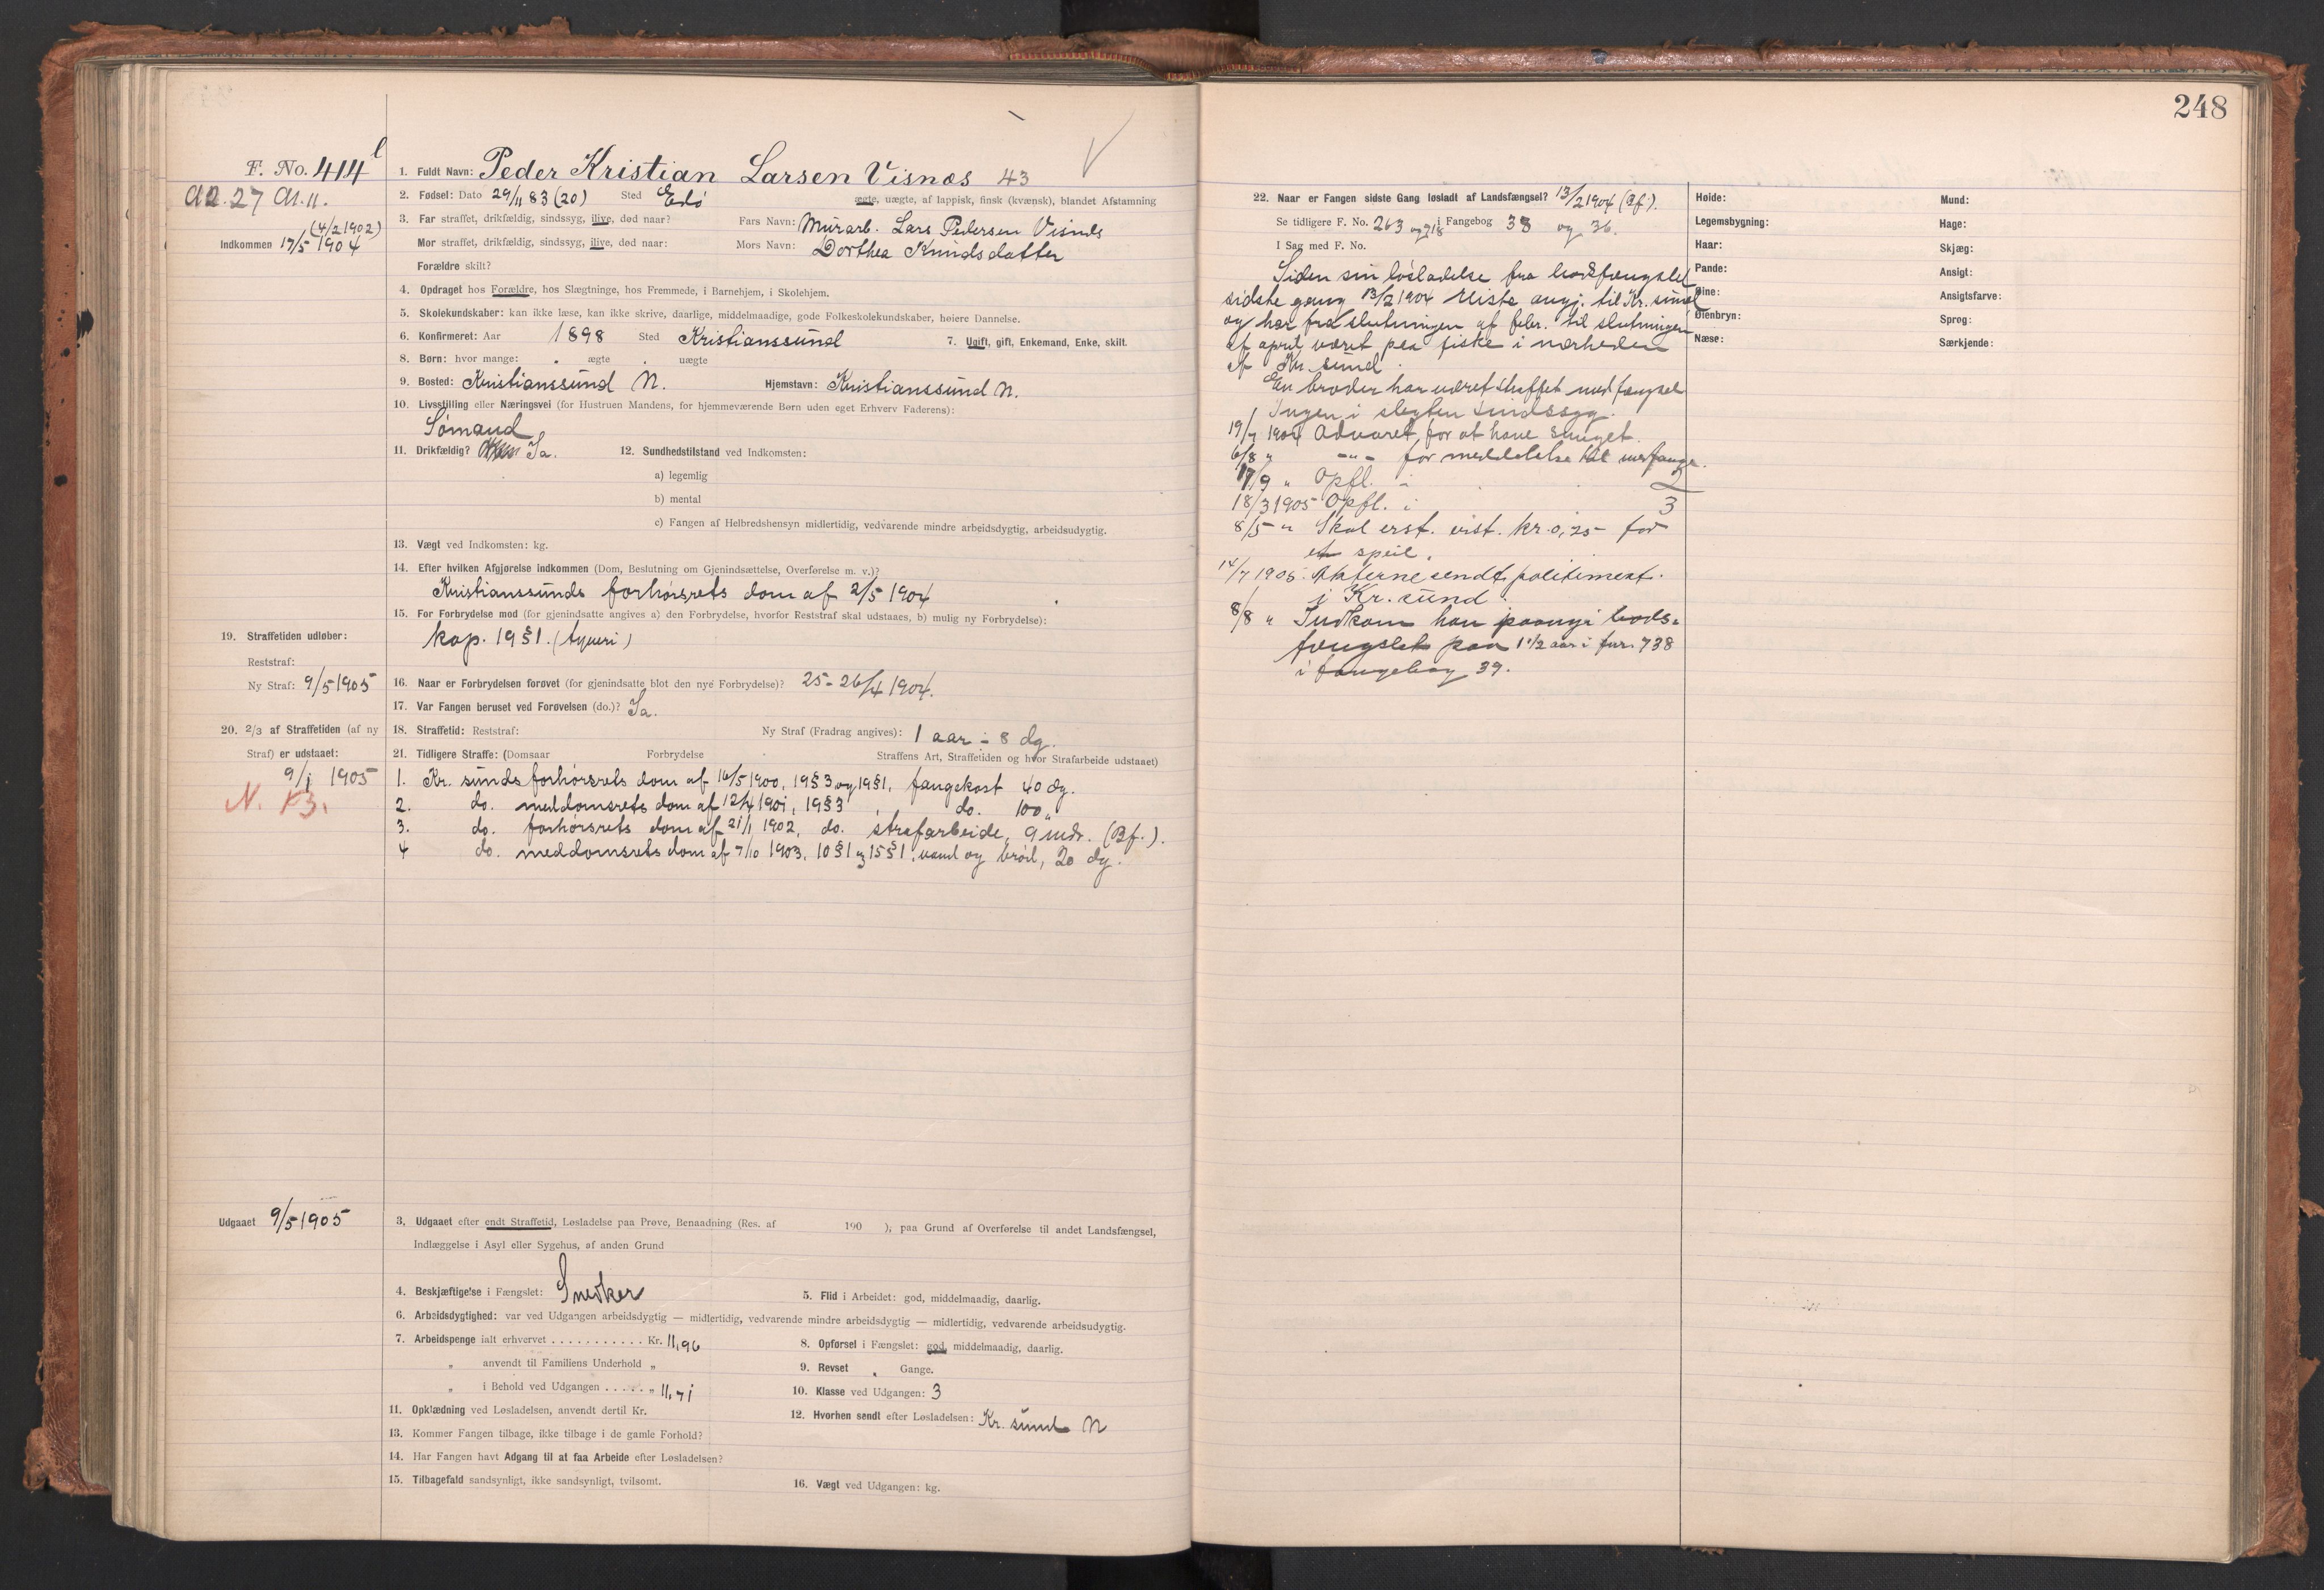 248
F. No. 414 l
A2. 27 A1. 11.
(4/2 1902)
Indkommen 17/5 1904
1. Fuldt Navn: Peder Kristian Larsen Visnæs 43
2. Fødsel: Dato 29/11 83 (20) Sted Edø ægte, uægte, af lappisk, finsk (kvænsk), blandet Afstamning
3. Far straffet, drikfældig, sindssyg, ilive, død naar? Fars Navn: Murarb. Lars Pedersen Visnæs
Mor straffet, drikfældig, sindssyg, ilive, død naar: Mors Navn: Dorthea Knudsdatter
Forældre skilt?
4. Opdraget hos Forældre, hos Slægtninge, hos Fremmede, i Barnehjem, i Skolehjem.
5. Skolekundskaber: kan ikke læse, kan ikke skrive, daarlige, middelmaadige, gode Folkeskolekundskaber, høiere Dannelse.
6. Konfirmeret: Aar 1898 Sted Kristianssund 7. Ugift, gift, Enkemand, Enke, skilt.
8. Børn: hvor mange: ægte uægte
9. Bosted: Kristianssund N. Hjemstavn: Kristianssund N.
10. Livsstilling eller Næringsvei (for Hustruen Mandens, for hjemmeværende Børn uden eget Erhverv Faderens):
Sømand
11. Drikfældig? Ja. 12. Sundhedstilstand ved Indkomsten:
a) legemlig
b) mental
c) Fangen af Helbredshensyn midlertidig, vedvarende mindre arbeidsdygtig, arbeidsudygtig.
13. Vægt ved Indkomsten: kg.
14. Efter hvilken Afgjørelse indkommen (Dom, Beslutning om Gjenindsættelse, Overførelse m. v.)?
Kristianssunds forhørsrets dom af 2/5 1904
15. For Forbrydelse mod (for gjenindsatte angives a) den Forbrydelse, hvorfor Reststraf skal udstaaes, b) mulig ny Forbrydelse):
kap. 19 § 1. (tyveri)
19. Straffetiden udløber:
Reststraf:
Ny Straf: 9/5 1905
16. Naar er Forbrydelsen forøvet (for gjenindsatte blot den nye Forbrydelse)? 25-26/4 1904.
17. Var Fangen beruset ved Forøvelsen (do.)? Ja.
20. 2/3 af Straffetiden (af ny
Straf) er udstaaet:
9/1 1905
N. F3.
18. Straffetid: Reststraf: Ny Straf (Fradrag angives): 1 aar ÷ 8 dg.
21. Tidligere Straffe: (Domsaar Forbrydelse Straffens Art, Straffetiden og hvor Strafarbeide udstaaet)
1. Kr. sunds forhørsrets dom af 16/5 1900, 19 § 3 og 19 § 1, fangekost 40 dg.
2. do. meddomsrets dom af 12/4 1901, 19 § 3 do. 100 „
3. do. forhørsrets dom af 21/1 1902, do. strafarbeide, 9 mdr. (Bf.).
4 do. meddomsrets dom af 7/10 1903, 10 § 1 og 15 § 1, vand og brød, 20 dg.
Udgaaet 9/5 1905
3, Udgaaet efter endt Straffetid, Løsladelse paa Prøve, Benaadning (Res. af 190 ), paa Grund af Overførelse til andet Landsfængsel,
Indlæggelse i Asyl eller Sygehus, af anden Grund
4. Beskjæftigelse i Fængslet: Snedker 5. Flid i Arbeidet: god, middelmaadig, daarlig.
6. Arbeidsdygtighed: var ved Udgangen arbeidsdygtig — midlertidig, vedvarende mindre arbeidsdygtig — midlertidig, vedvarende arbeidsudygtig.
7. Arbeidspenge ialt erhvervet . . . . . . . . . . . Kr. 11,96 8. Opførsel i Fængslet: god, middelmaadig, daarlig.
„ anvendt til Familiens Underhold „ 9. Revset Gange.
„ i Behold ved Udgangen . . . . . „ 11,71 10. Klasse ved Udgangen: 3
11. Opklædning ved Løsladelsen, anvendt dertil Kr. 12. Hvorhen sendt efter Løsladelsen: Kr. sund N
13. Kommer Fangen tilbage, ikke tilbage i de gamle Forhold?
14. Har Fangen havt Adgang til at faa Arbeide efter Løsladelsen?
15. Tilbagefald sandsynligt, ikke sandsynligt, tvilsomt. 16. Vægt ved Udgangen: kg.
22. Naar er Fangen sidste Gang løsladt af Landsfængsel? 13/2 1904 (Bf.).
Se tidligere F. No. 263 og 718 i Fangebog 38 og 36.
I Sag med F. No.
Siden sin løsladelse fra bodsfængslet
sidste gang 13/2 1904 reiste angj. til Kr. sund
og har fra slutningen af febr. til slutningen
af april været paa fiske i nærheden
af Kr. sund.
En broder har været straffet med fængsel
Ingen i slegten sindssyg.
19/7 1904 Advaret for at have sunget.
6/8 „ -„- for meddelelse til medfange.
17/9 „ Opfl. i 2
18/3 1905 Opfl. i 3
8/5 „ Skal erst. vist. kr. 0,25 for
et speil.
14/7 1905. Akterne sendt politimest.
i Kr. sund.
8/8 „ Indkom han paany i bods-
fængslet paa 1 1/2 aar i fnr. 738
i fangebog 39.
Høide:
Legemsbygning:
Haar:
Pande:
Øine:
Øienbryn:
Næse:
Mund:
Hage:
Skjæg:
Ansigt:
Ansigtsfarve:
Sprog:
Særkjende: